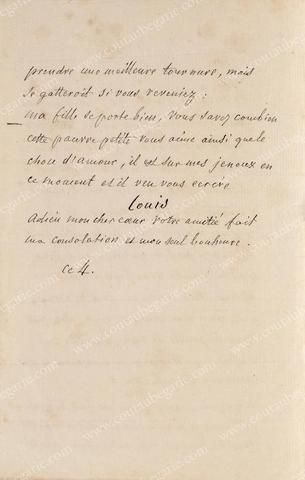 prendre une meilleure tournure, mais
se gatteroit si vous reveniez :
ma fille se porte bien, vous savez combien
cette pauvre petite vous aime ainsi que le
chou d'amour, il est sur mes jenoux en
ce moment et il veu vous ecrire
Louis
adieu mon cher cœur votre amitié fait
ma consolation et mon seul bonheur.
ce 4.
www.coutaubegarie.com